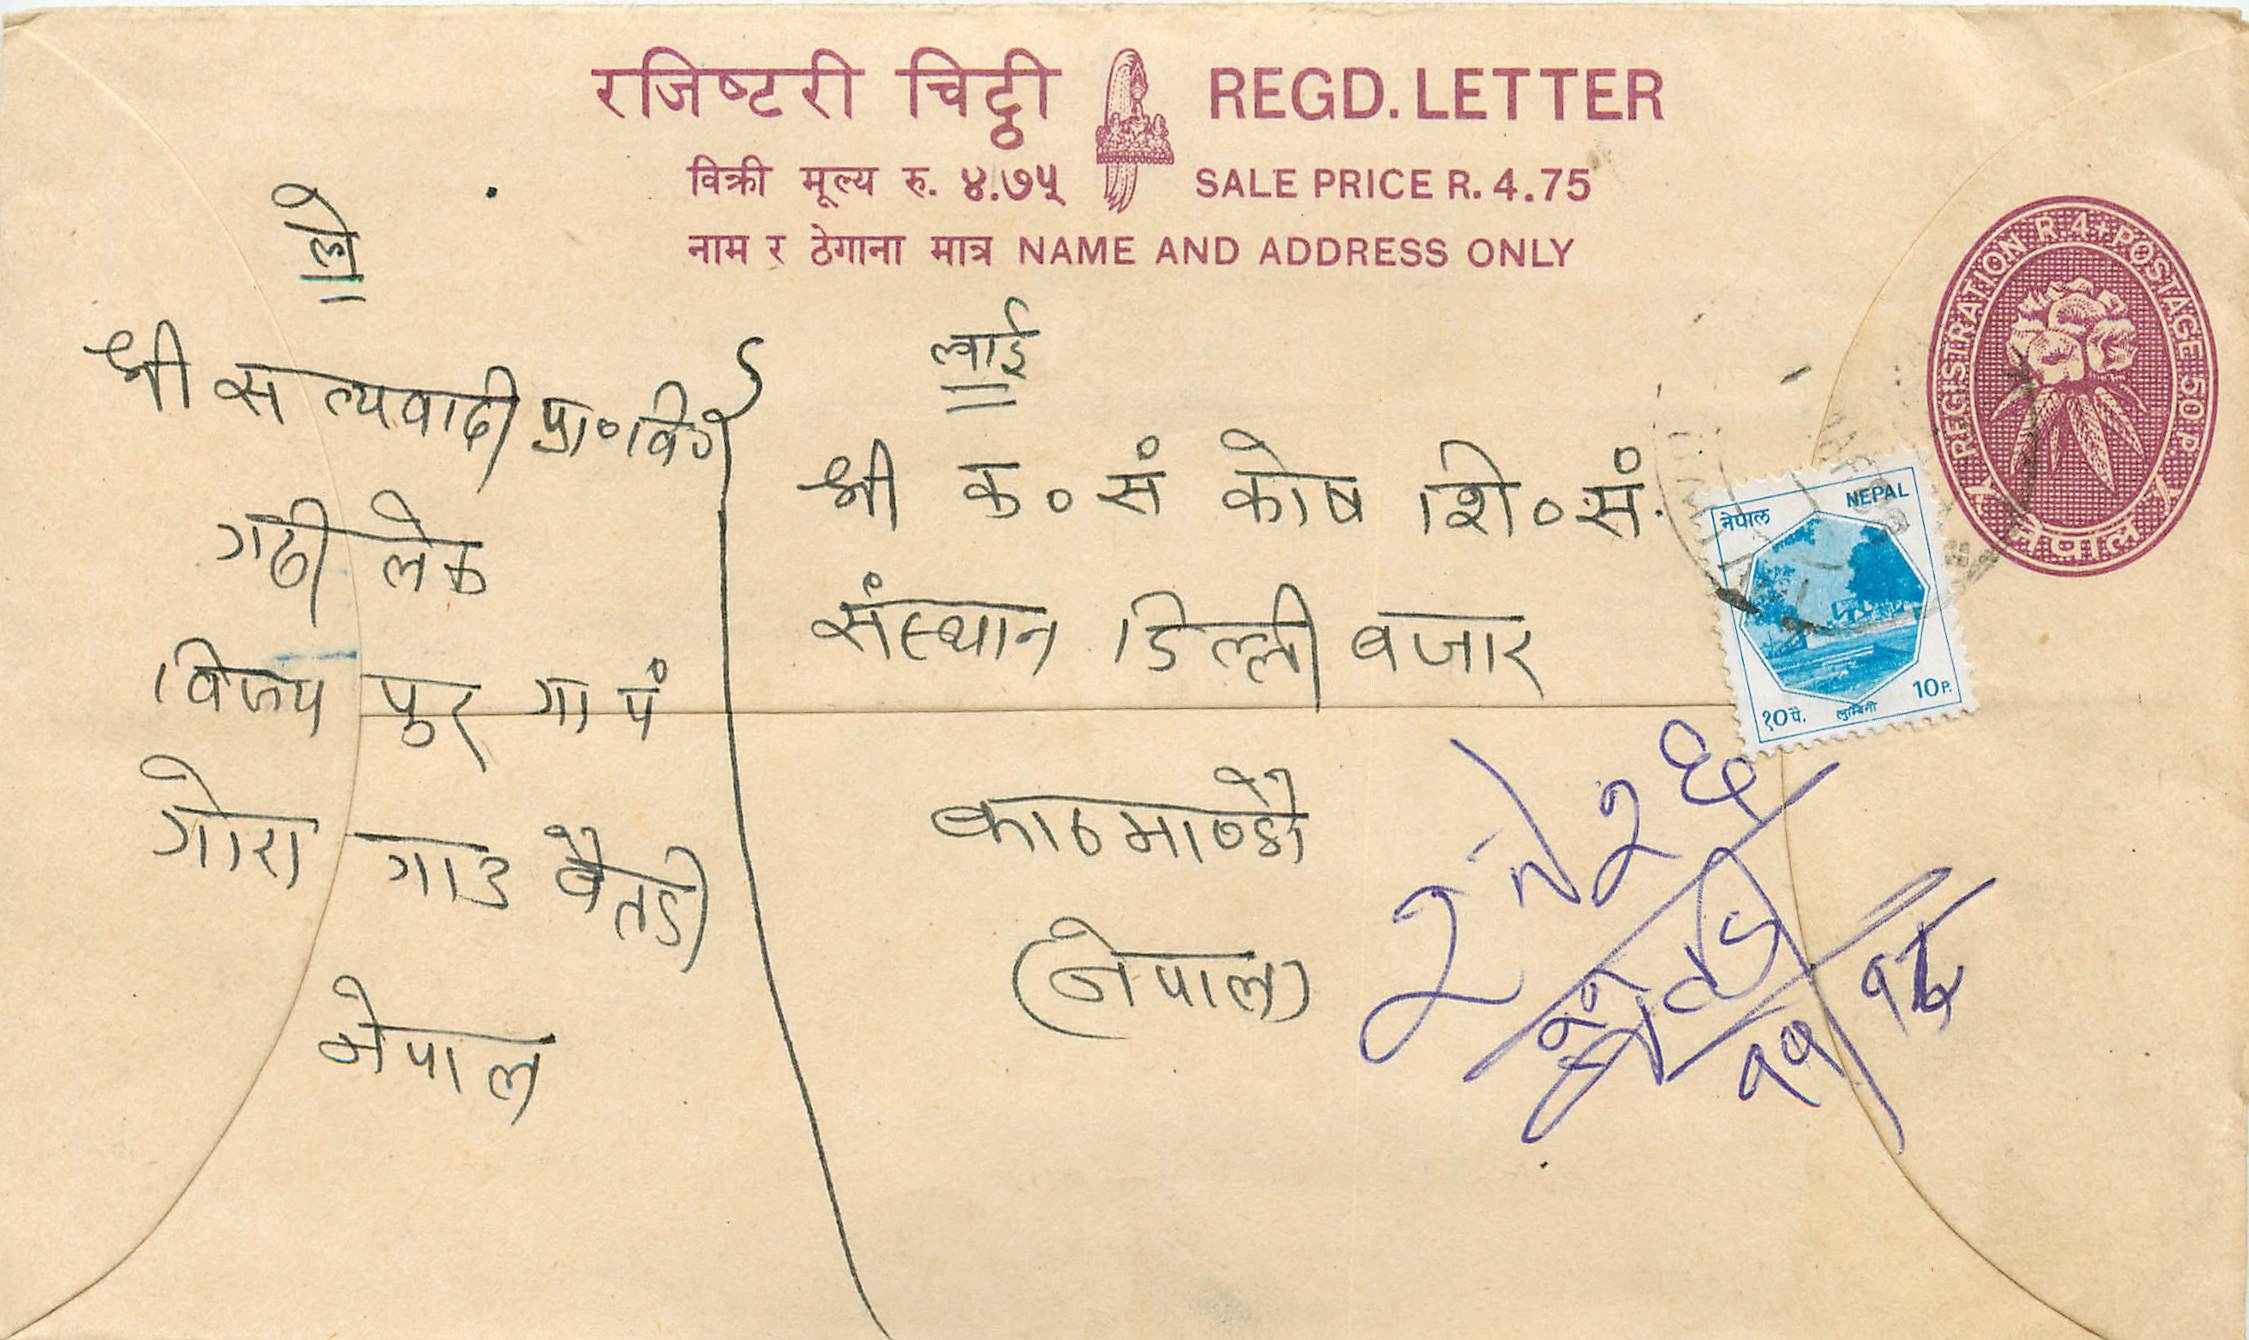 रजिष्टरी चिठ्ठी REGD. LETTER
विक्री मूल्य रु. ४.७५ SALE PRICE R. 4.75
नाम र ठेगाना मात्र NAME AND ADDRESS ONLY
REGISTRATION R.4+POSTAGE 50 P.
नेपाल
ले
श्री सत्यवादी प्रा०वि०
गढी लेक
विजय पुर गा पं
गोरा गाउ बैतडी
नेपाल
ल्वाई
श्री क० सं कोष शि० सं.
संस्थान डिल्ली बजार
काठमाण्डौ
(नेपाल)
नेपाल NEPAL
१० पै. लुम्बिनी 10 P.